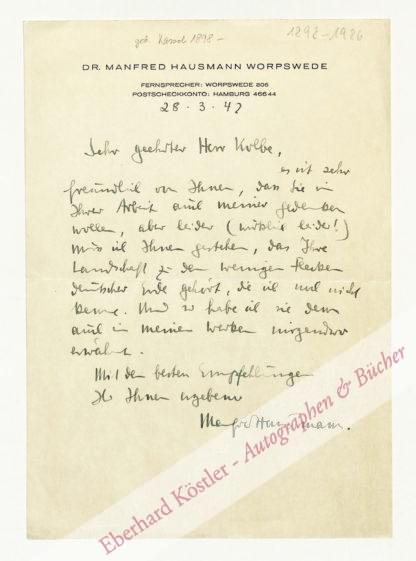 geb. Kassel 1898 –
1898–1986
DR. MANFRED HAUSMANN WORPSWEDE
FERNSPRECHER: WORPSWEDE 205
POSTSCHECKKONTO: HAMBURG 46644
28 · 3 · 47
Sehr geehrter Herr Kolbe,
es ist sehr
freundlich von Ihnen, dass Sie in
Ihrer Arbeit auch meiner gedenken
wollen, aber leider (wirklich leider!)
muss ich Ihnen gestehen, dass Ihre
Landschaft zu den wenigen Flecken
deutscher Erde gehört, die ich noch nicht
kenne. Und so habe ich sie denn
auch in meinen Werken nirgendwo
erwähnt.
Mit den besten Empfehlungen
Ihr Ihnen ergebener
Manfred Hausmann.
Eberhard Köstler - Autographen & Bücher